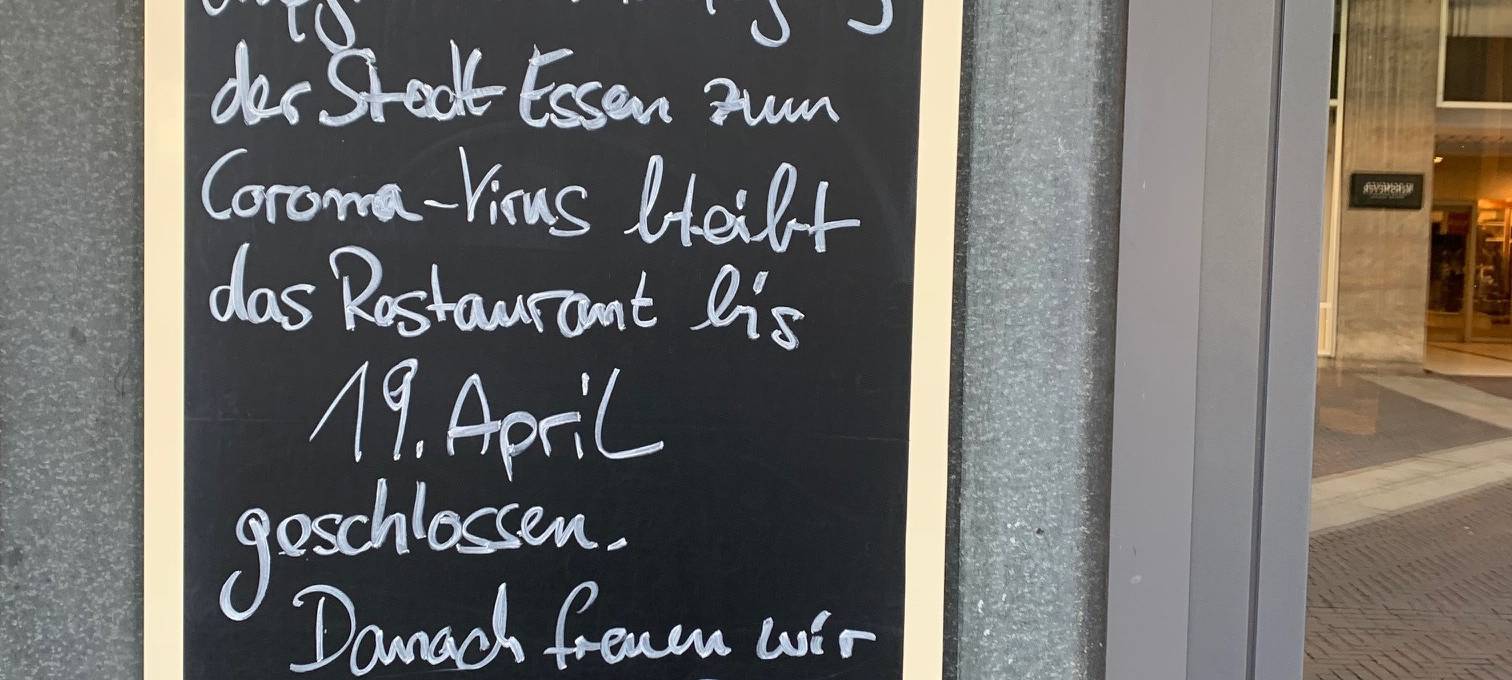 der Stadt Essen zum
Corona-Virus bleibt
das Restaurant bis
19. April
geschlossen.
Danach freuen wir